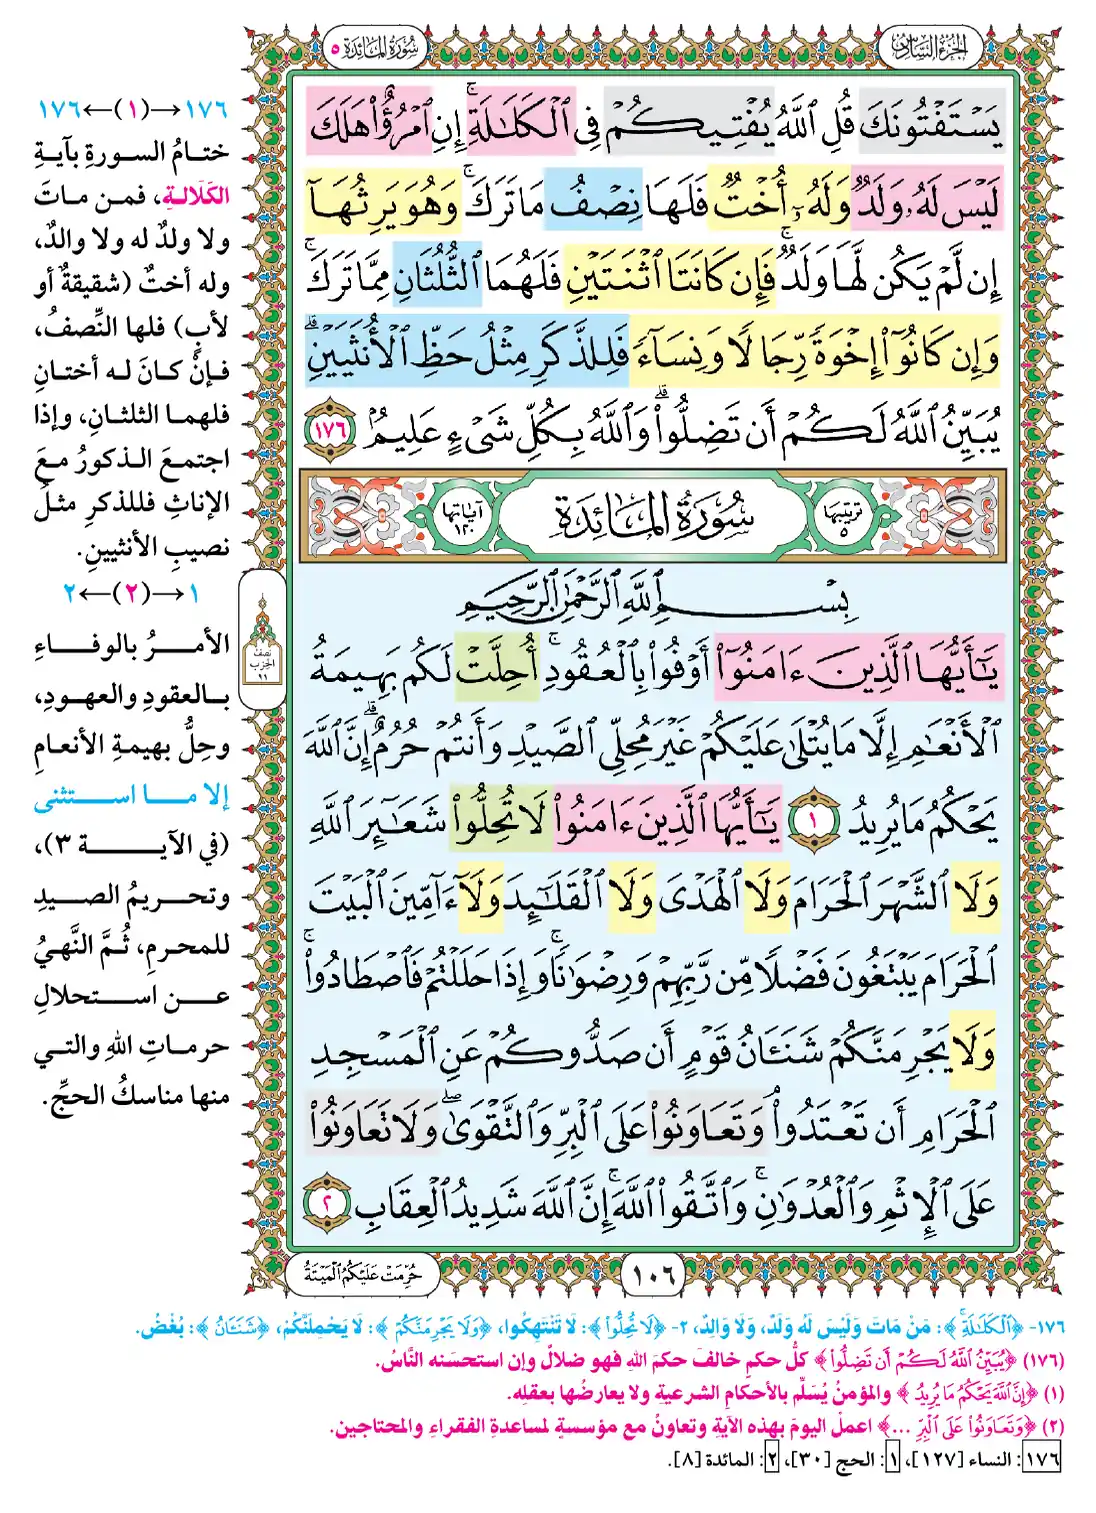 الجزء السادس
سورة المائدة ٥
يَسْتَفْتُونَكَ قُلِ ٱللَّهُ يُفْتِيكُمْ فِي ٱلْكَلَٰلَةِۚ إِنِ ٱمْرُؤٌا۟ هَلَكَ
لَيْسَ لَهُۥ وَلَدٌ وَلَهُۥٓ أُخْتٌ فَلَهَا نِصْفُ مَا تَرَكَۚ وَهُوَ يَرِثُهَآ
إِن لَّمْ يَكُن لَّهَا وَلَدٌۚ فَإِن كَانَتَا ٱثْنَتَيْنِ فَلَهُمَا ٱلثُّلُثَانِ مِمَّا تَرَكَۚ
وَإِن كَانُوٓا۟ إِخْوَةً رِّجَالًا وَنِسَآءً فَلِلذَّكَرِ مِثْلُ حَظِّ ٱلْأُنثَيَيْنِۗ
يُبَيِّنُ ٱللَّهُ لَكُمْ أَن تَضِلُّوا۟ۗ وَٱللَّهُ بِكُلِّ شَىْءٍ عَلِيمٌۢ ١٧٦
ترتيبها ٥ سورة المائدة آياتها ١٢٠
بِسْمِ ٱللَّهِ ٱلرَّحْمَٰنِ ٱلرَّحِيمِ
يَٰٓأَيُّهَا ٱلَّذِينَ ءَامَنُوٓا۟ أَوْفُوا۟ بِٱلْعُقُودِۚ أُحِلَّتْ لَكُم بَهِيمَةُ
ٱلْأَنْعَٰمِ إِلَّا مَا يُتْلَىٰ عَلَيْكُمْ غَيْرَ مُحِلِّى ٱلصَّيْدِ وَأَنتُمْ حُرُمٌۗ إِنَّ ٱللَّهَ
يَحْكُمُ مَا يُرِيدُ ١ يَٰٓأَيُّهَا ٱلَّذِينَ ءَامَنُوا۟ لَا تُحِلُّوا۟ شَعَٰٓئِرَ ٱللَّهِ
وَلَا ٱلشَّهْرَ ٱلْحَرَامَ وَلَا ٱلْهَدْىَ وَلَا ٱلْقَلَٰٓئِدَ وَلَآ ءَآمِّينَ ٱلْبَيْتَ
ٱلْحَرَامَ يَبْتَغُونَ فَضْلًا مِّن رَّبِّهِمْ وَرِضْوَٰنًاۚ وَإِذَا حَلَلْتُمْ فَٱصْطَادُوا۟ۚ
وَلَا يَجْرِمَنَّكُمْ شَنَـَٔانُ قَوْمٍ أَن صَدُّوكُمْ عَنِ ٱلْمَسْجِدِ
ٱلْحَرَامِ أَن تَعْتَدُوا۟ۘ وَتَعَاوَنُوا۟ عَلَى ٱلْبِرِّ وَٱلتَّقْوَىٰۖ وَلَا تَعَاوَنُوا۟
عَلَى ٱلْإِثْمِ وَٱلْعُدْوَٰنِۚ وَٱتَّقُوا۟ ٱللَّهَۖ إِنَّ ٱللَّهَ شَدِيدُ ٱلْعِقَابِ ٢
١٠٦
حُرِّمَتْ عَلَيْكُمُ ٱلْمَيْتَةُ
نصف
الحزب
١١
١٧٦→(١)←١٧٦
ختامُ السورةِ بآيةِ
الكَلالةِ، فمن ماتَ
ولا ولدٌ له ولا والدٌ،
وله أختٌ (شقيقةٌ أو
لأبٍ) فلها النِّصفُ،
فإنْ كانَ له أختانِ
فلهما الثلثانِ، وإذا
اجتمعَ الذكورُ معَ
الإناثِ فللذكرِ مثلُ
نصيبِ الأنثيينِ.
١→(٢)←٢
الأمرُ بالوفاءِ
بالعقودِ والعهودِ،
وحِلُّ بهيمةِ الأنعامِ
إلا ما استثنى
(في الآية ٣)،
وتحريمُ الصيدِ
للمحرمِ، ثُمَّ النَّهيُ
عن استحلالِ
حرماتِ اللهِ والتي
منها مناسكُ الحجِّ.
١٧٦- ﴿ٱلْكَلَٰلَةِۚ﴾: مَنْ مَاتَ وَلَيْسَ لَهُ وَلَدٌ، وَلَا وَالِدٌ، ٢- ﴿لَا تُحِلُّوا۟﴾: لَا تَنْتَهِكُوا، ﴿وَلَا يَجْرِمَنَّكُمْ﴾: لَا يَحْمِلَنَّكُمْ، ﴿شَنَـَٔانُ﴾: بُغْضُ.
(١٧٦) ﴿يُبَيِّنُ ٱللَّهُ لَكُمْ أَن تَضِلُّوا۟﴾ كلُّ حكمٍ خالفَ حكمَ اللهِ فهو ضلالٌ وإن استحسَنه النَّاسُ.
(١) ﴿إِنَّ ٱللَّهَ يَحْكُمُ مَا يُرِيدُ﴾ والمؤمنُ يُسَلِّم بالأحكامِ الشرعيةِ ولا يعارضُها بعقلِه.
(٢) ﴿وَتَعَاوَنُوا۟ عَلَى ٱلْبِرِّ ...﴾ اعملْ اليومَ بهذه الآيةِ وتعاونْ مع مؤسسةٍ لمساعدةِ الفقراءِ والمحتاجين.
١٧٦: النساء [١٢٧]، ١: الحج [٣٠]، ٢: المائدة [٨].